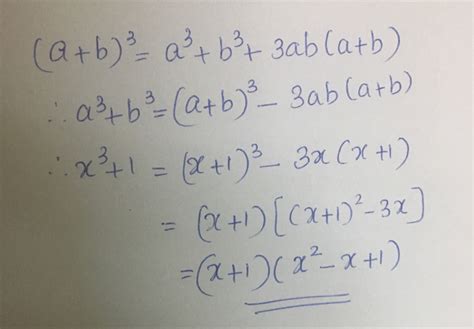 (a+b)³ = a³+b³+3ab(a+b)
∴ a³+b³=(a+b)³−3ab(a+b)
∴ x³+1 = (x+1)³−3x(x+1)
= (x+1)[(x+1)²−3x]
=(x+1)(x²−x+1)